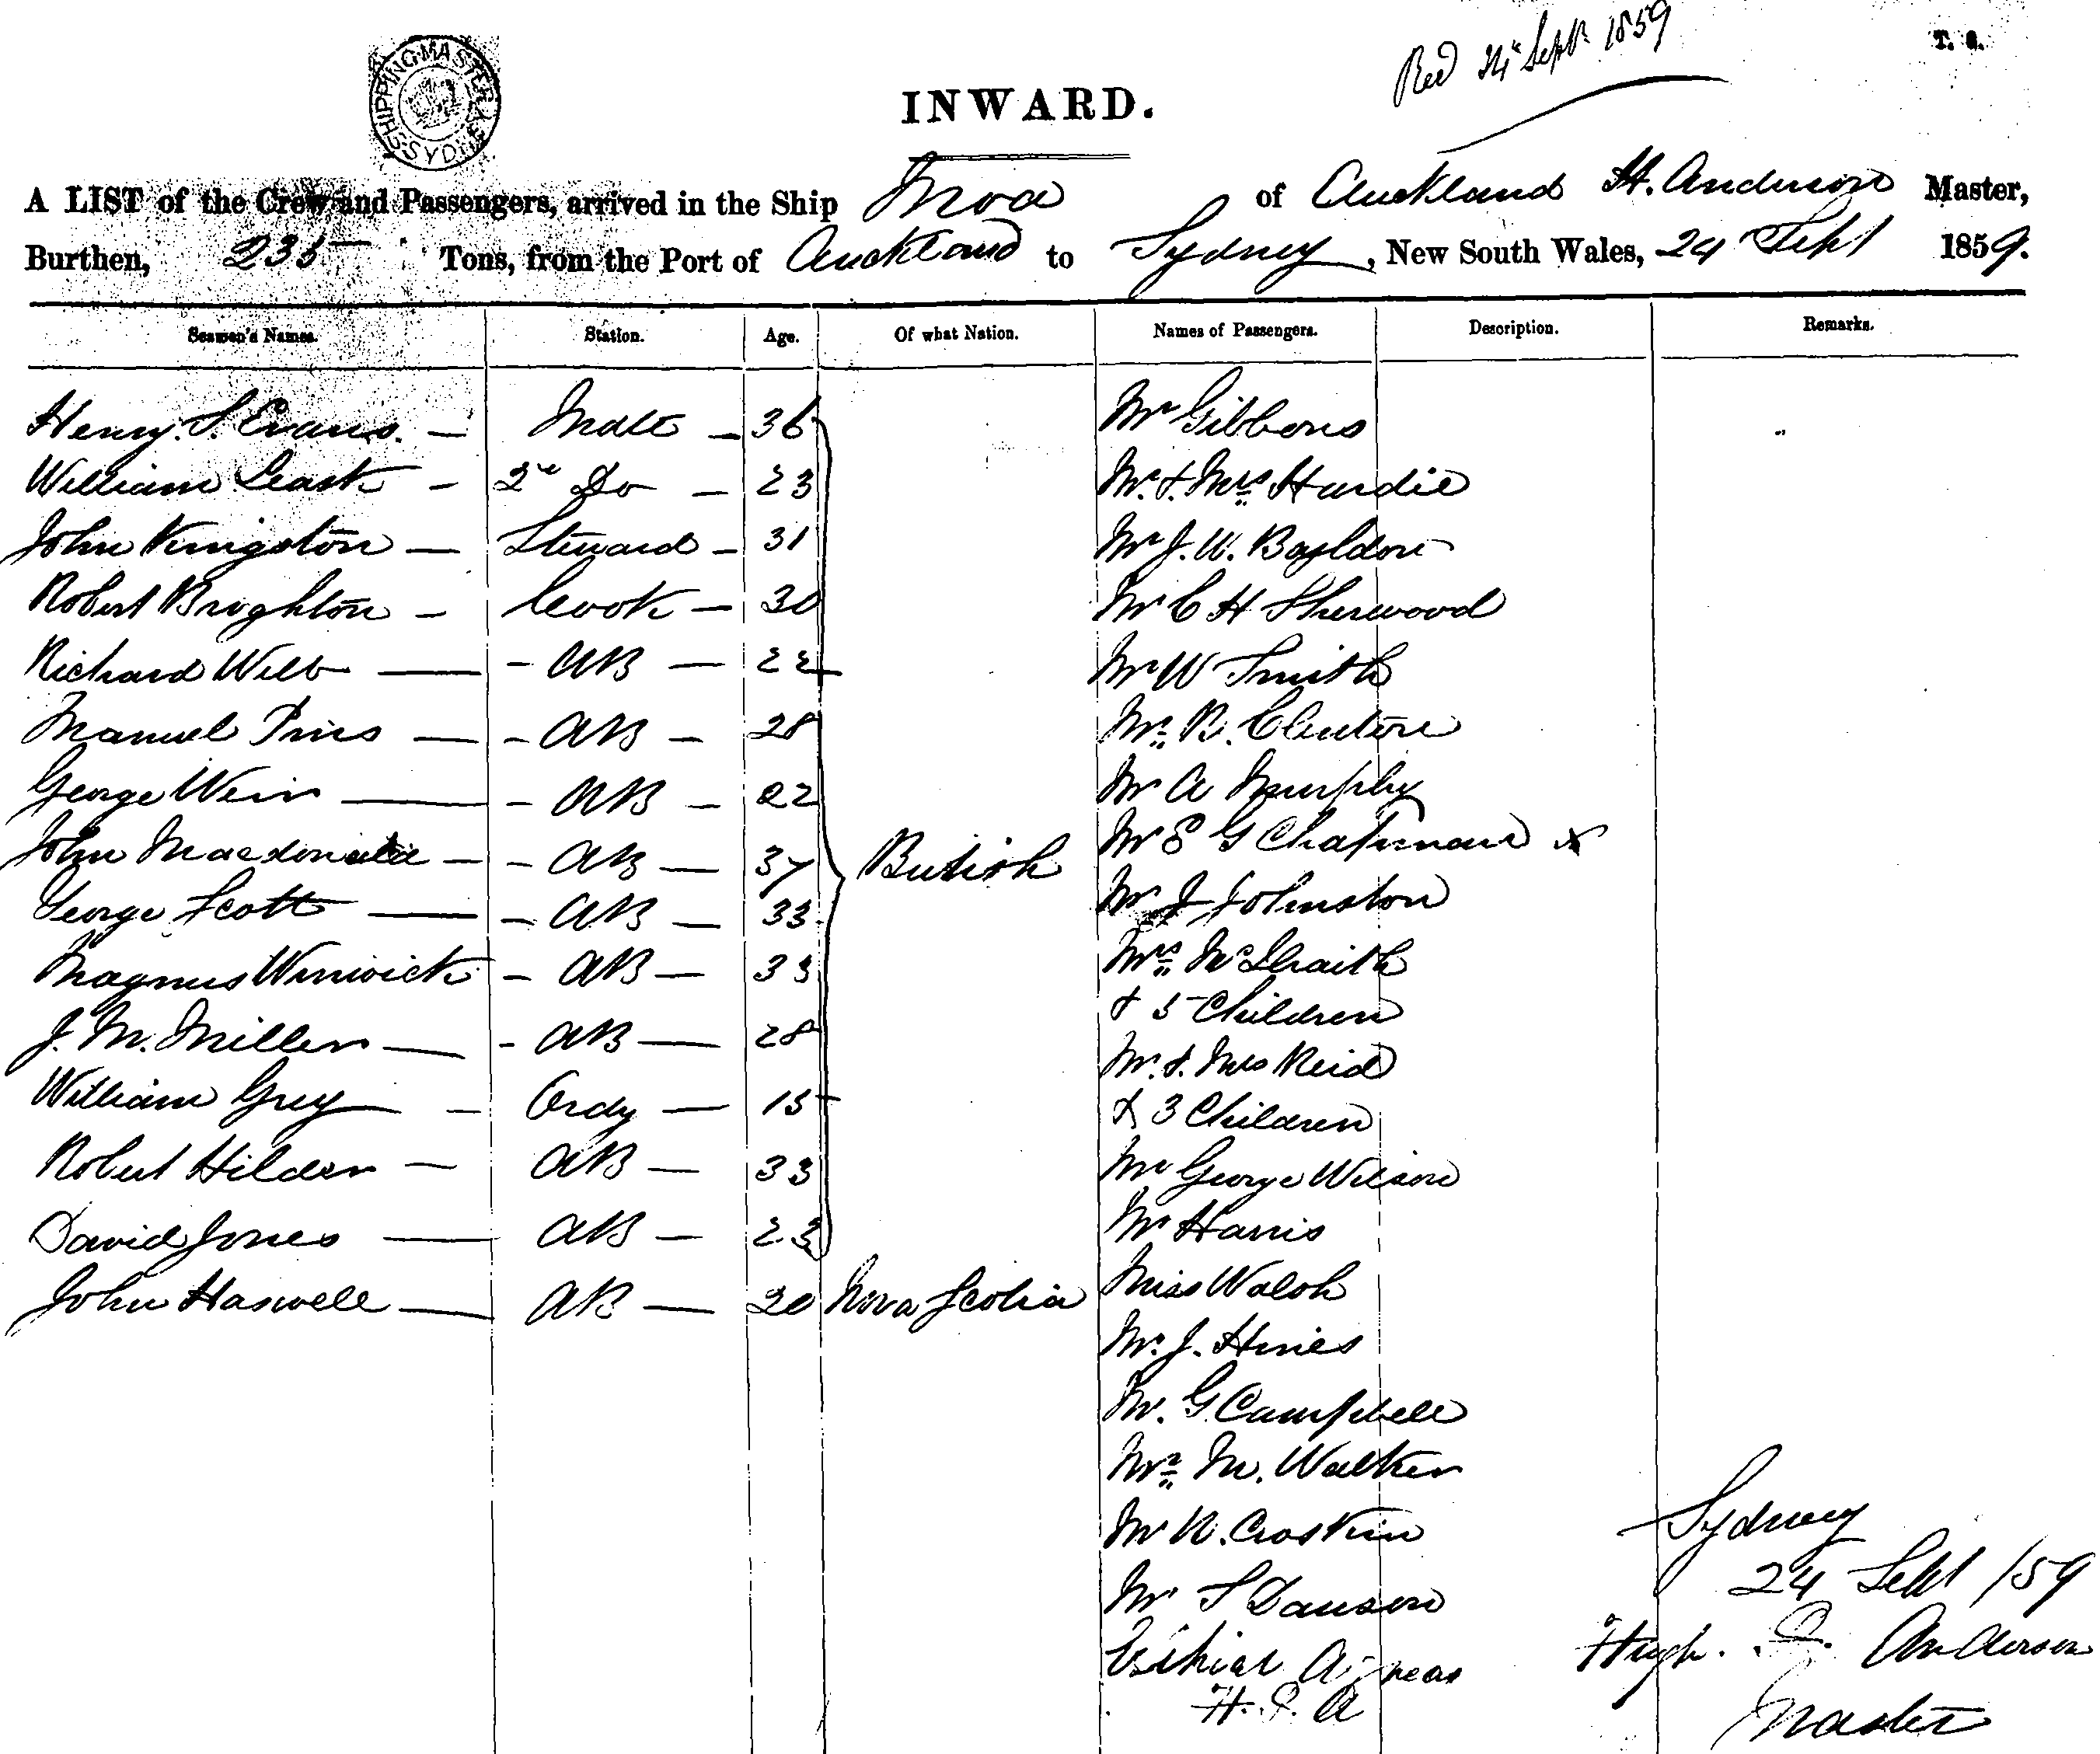 Recd 24 Septr. 1859
T. 6.
SHIPPING MASTER'S SYDNEY
INWARD.
A LIST of the Crew and Passengers, arrived in the Ship Moa of Auckland H. Anderson Master,
Burthen, 235 Tons, from the Port of Auckland to Sydney, New South Wales, 24 Sept 1859.
Seamen's Names. Station. Age. Of what Nation. Names of Passengers. Description. Remarks.
Henry. S. Evans. — Mate — 36 Mr Gibbons
William Leask — 2nd Do — 23 Mr. & Mrs Hardie
John Kingston — Steward — 31 Mr J. W. Bayldon
Robert Broghton — Cook — 30 Mr C H Sherwood
Richard Webb — AB — 22 Mr W Smith
Manuel — AB — 28 Mr. R. Clinton
George Weir — AB — 22 Mr A Murphy
John Macdonald — AB — 37 British Mr E G Chapman x
George Scott — AB — 33 Mr J Johnston
Magnus Winwick — AB — 33 Mrs McIlraith
& 5 Children
J. M. Miller — AB — 28 Mr. & Mrs Reid
William Grey — Ordy — 15 & 3 Children
Robert Hilder — AB — 33 Mr George Wilson
David Jones — AB — 23 Mr Harris
John Haswell — AB — 20 Nova Scotia Miss Walsh
Mr. J. Hines
Mr. G Campbell
Mrs M. Walker
Mr R. Croskin
Mr S Dawson
H. S. A
Sydney
24 Sept /59
Hugh. S. Anderson
Master